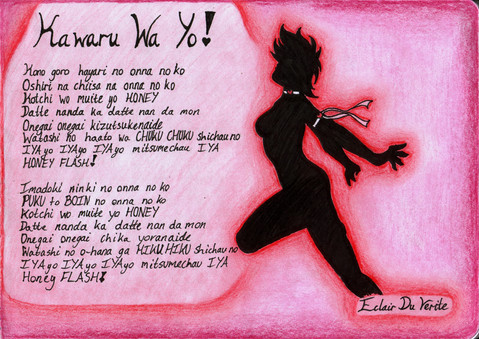 Kawaru Wa Yo!
Kono goro hayari no onna no ko
Oshiri na chiisa na onna no ko
Kotchi wo muite yo HONEY
Datte nanda ka datte nan da mon
Onegai onegai kizutsukenaide
Watashi no haato wa CHUKU CHUKU shichau no
IYAyo IYAyo IYAyo mitsumechau IYA
HONEY FLASH!
Imadoki ninki no onna no ko
PUKU to BOIN no onna no ko
Kotchi wo muite yo HONEY
Datte nanda ka datte nan da mon
Onegai onegai chika yoranaide
Watashi no o-hana ga HIKU HIKU shichau no
IYAyo IYAyo IYAyo mitsumechau IYA
Honey FLASH!
Eclair Du Verite